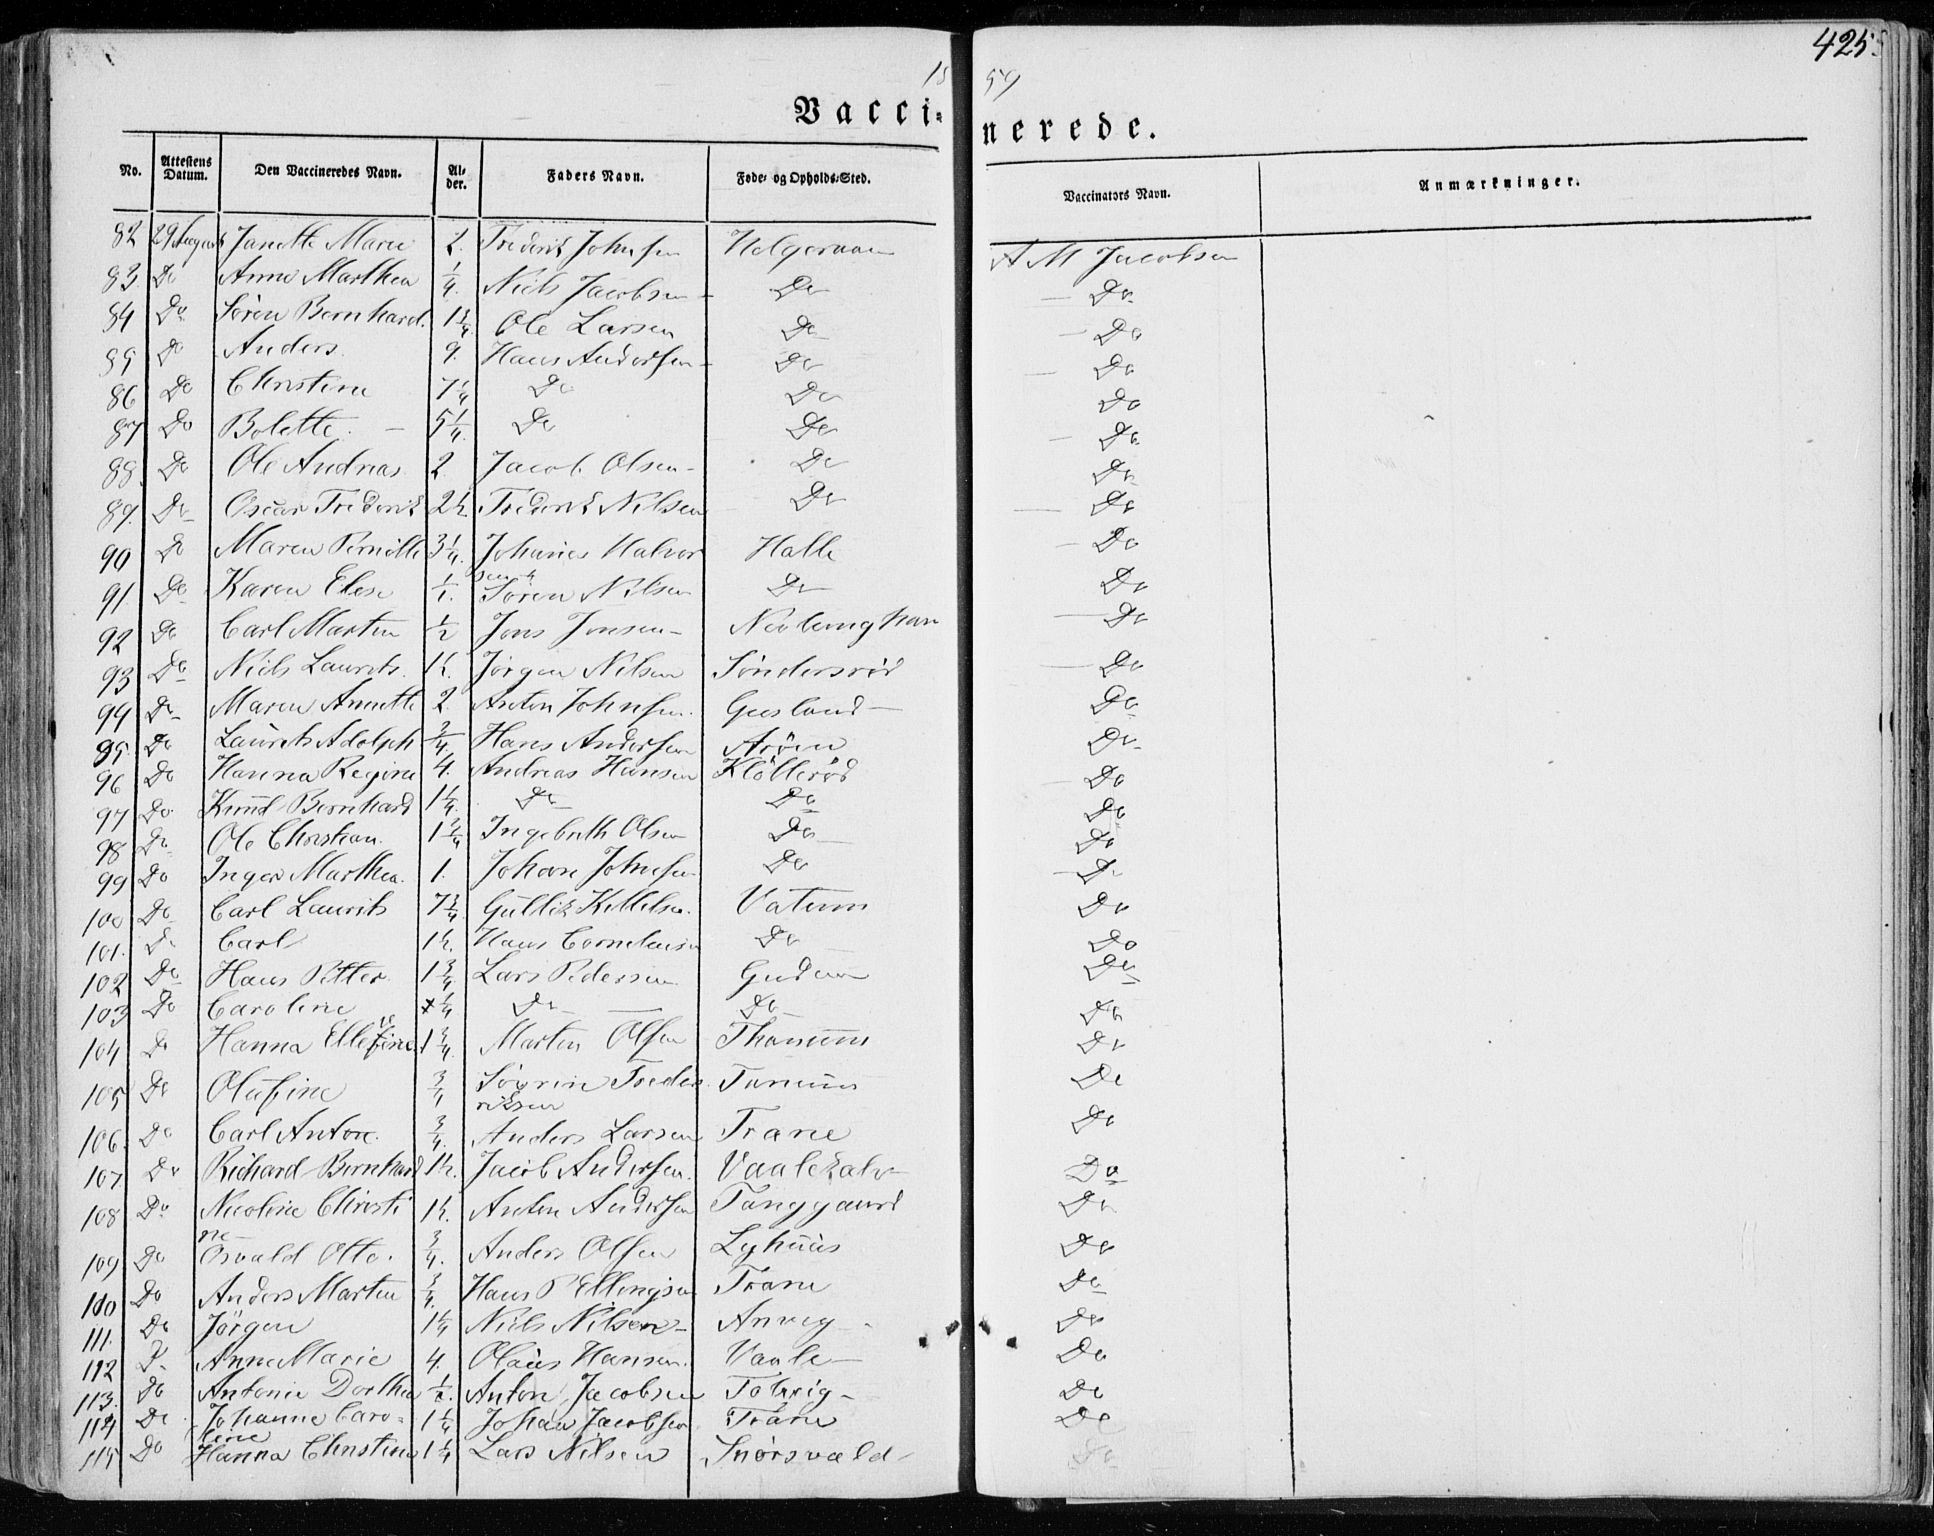 425
18 59
Vacci- nerede.
No. Attestens Datum. Den Vaccineredes Navn. Al-der. Faders Navn. Føde- og Opholds-Sted. Vaccinators Navn. Anmærkninger.
82 29 August Janette Marie 2. Frederik Johnsen Helgeraaen A M Jacobsen
83 Do Anne Marthea 1/4. Niels Jacobsen - Do - Do
84 Do Søren Bernhard. 1 3/4. Ole Larsen Do - Do
85 Do Anders. 9. Hans Andersen - Do - Do
86 Do Christine 7 1/4 Do Do Do
87 Do Bolette. - 5 1/4. Do Do - Do
88. Do Ole Andreas 2. Jacob Olsen - Do Do
89. Do Oscar Frederik 2 1/2. Frederik Nilsen Do - Do
90 Do Maren Pernille 3 1/4. Johanes Halvor Halle - Do
sen
91. Do Karen Elese Søren Nilsen Do Do
92 Do Carl Martin 1/2 Jens Jensen - Nevlunghavn - Do
93 Do Niels Laurits. 1 1/2. Jørgen Nilsen Søndersrød - Do
94 Do Maren Annette 2. Anton Johnsen. Gusland - Do
95. Do Laurits Adolph 3/4. Hans Andersen Arøen Do
96 Do Hanna Regine 4. Andreas Hansen Kløllerød - Do
97 Do Knud Bernhard 1 1/4. Do Do Do
98 Do Ole Christian. 1 3/4 Ingebrith Olsen Do Do
99 Do Inger Marthea. 1. Johan Johnsen Do - Do
100 Do Carl Laurits 7 3/4. Gullik Kittilsen. Vatnum Do
101. Do Carl 1 1/2. Hans Corneliusen Do Do
102 Do Hans Petter. 1 3/4 Lars Pedersen Gudem Do
103 Do Caroline 1/4 Do Do Do
104 Do Hanna Ellefine 1 3/4. Martin Olsen Thanum Do
105 Do Olufine 3/4 Søvrin Freder Tanum Do
riksen
106. Do Carl Anton. 3/4. Anders Larsen Trane Do
107 Do Richard Bernhard 1 1/2. Jacob Andersen. Do
108 Do Nicoline Christi 1 1/2. Anton Andersen Tanggaard Do
ne -
109 Do Osvald Otto. 3/4. Anders Olsen Lyhuus Do
110 Do Anders Martin 3/4. Hans P Ellingsen Trane Do
111. Do Jörgen 1 1/4 Niels Nilsen - Anvig - Do
112 Do Anne Marie 4. Olaus Hansen. Vaale - Do
113. Do Antonie Dorthea 1/2. Anton Jacobsen - Do
114 Do Johanne Caro- 1 1/4 Johan Jacobsen Trane Do
line
115 Do Hanna Christine 1 1/4 Lars Nilsen Snørsvald Do